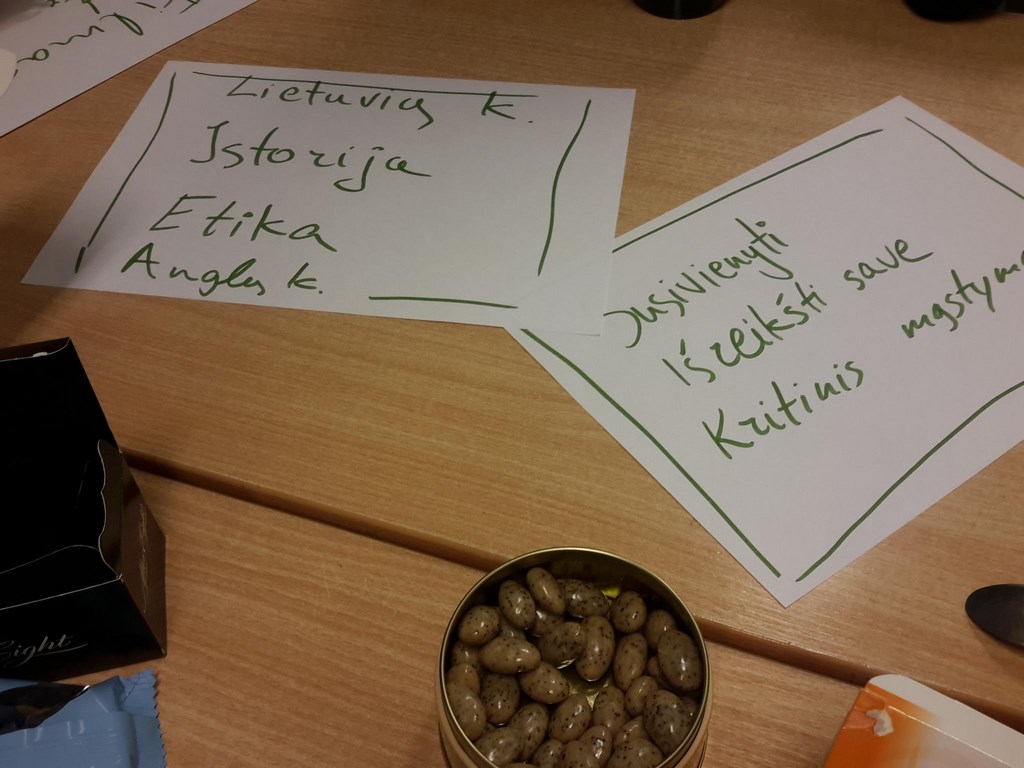 Lietuvių k.
Istorija
Etika
Anglų k.
Susivienyti
Išreikšti save
Kritinis mąstym